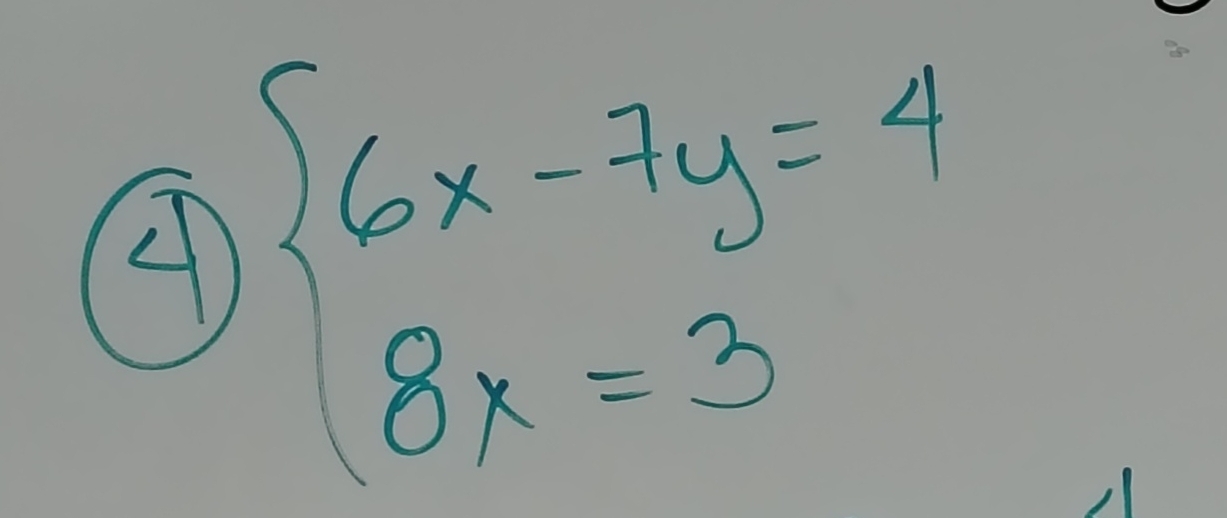 ④ { 6x - 7y = 4
8x = 3
4